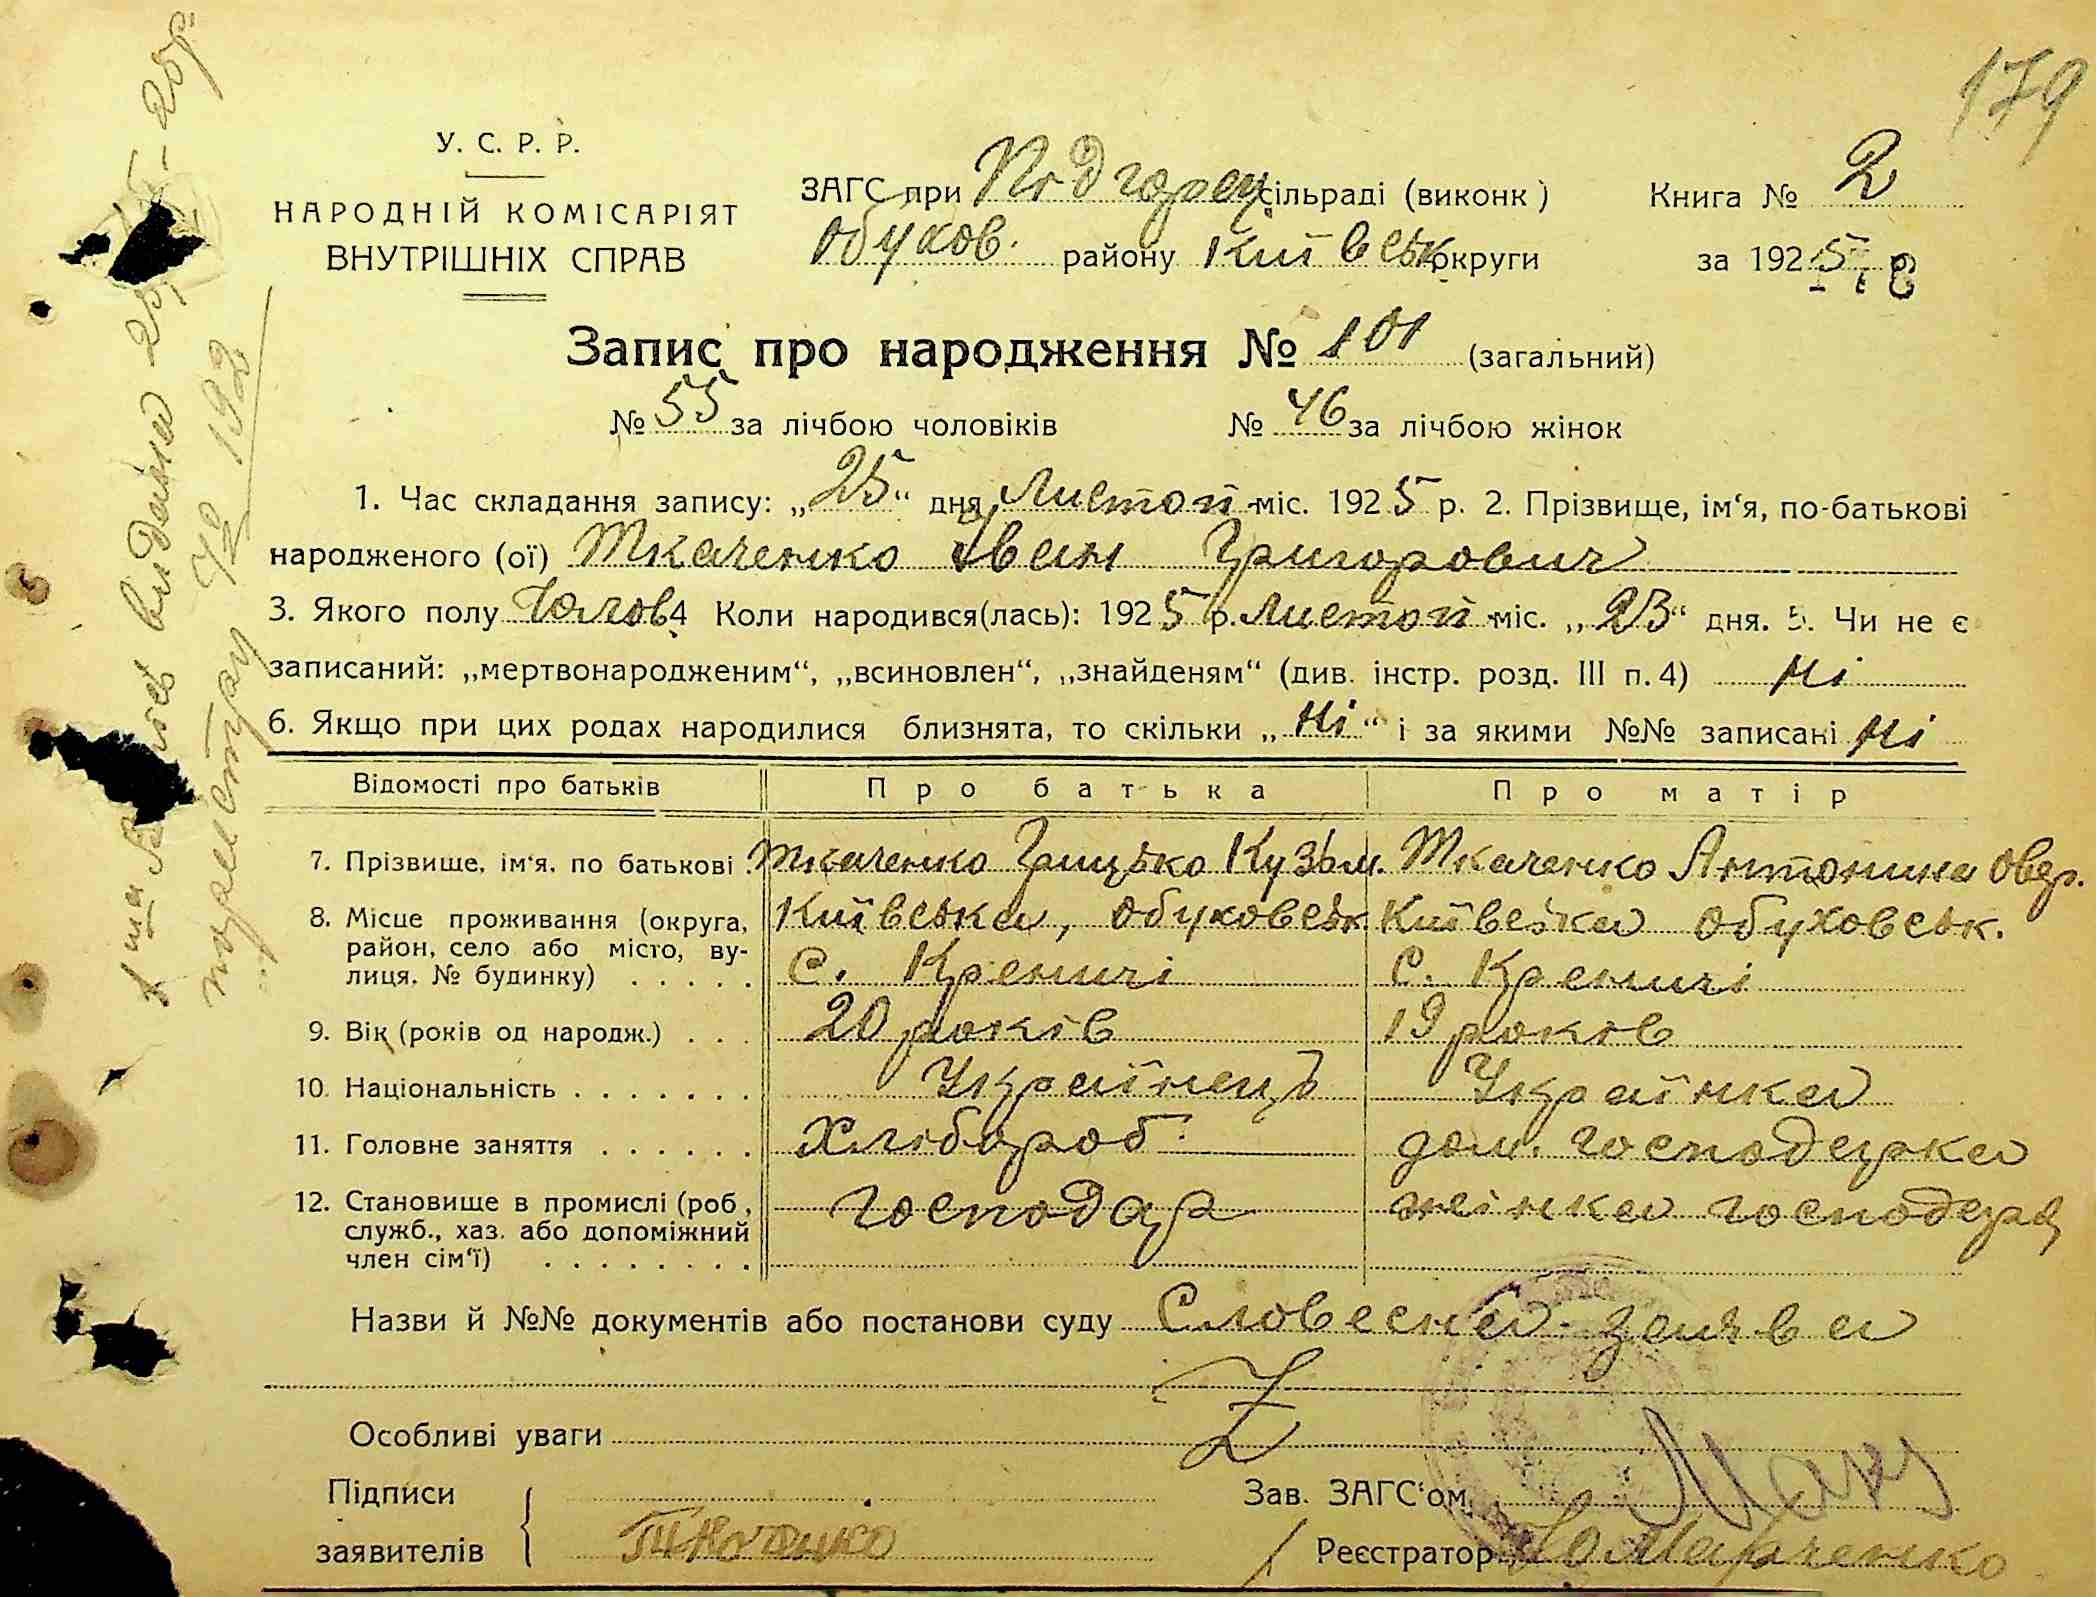 179
У. С. Р. Р.
НАРОДНІЙ КОМІСАРІЯТ
ВНУТРІШНІХ СПРАВ
ЗАГС при Подгорец. сільраді (виконк)
Обухов. району Київськ округи
Книга № 2
за 1925 р
178
Запис про народження № 101 (загальний)
№ 55 за лічбою чоловіків № 46 за лічбою жінок
1. Час складання запису: „25“ дня Листоп міс. 1925 р. 2. Прізвище, ім‘я, по-батькові
народженого (ої) Ткаченко Іван Григорович
3. Якого полу Чолов. 4 Коли народився(лась): 1925 р. Листоп міс. „23“ дня. 5. Чи не є
записаний: „мертвонародженим“, „всиновлен“, „знайденям“ (див. інстр. розд. III п. 4) Ні
6. Якщо при цих родах народилися близнята, то скільки „Ні“ і за якими №№ записані Ні
Відомості про батьків Про батька Про матір
7. Прізвище, ім‘я, по батькові. Ткаченко Грицько Кузьм. Ткаченко Антонина Овер.
8. Місце проживання (округа, Київська, Обуховськ. Київська Обуховськ.
район, село або місто, ву-
лиця, № будинку) . . . . . с. Креничі с. Креничі
9. Вік (років од народж.) . . . 20 років 19 років
10. Національність . . . . . . . Українець Українка
11. Головне заняття . . . . . . Хлібороб. дом. господарка
12. Становище в промислі (роб., господар жінка господаря
служб., хаз. або допоміжний
член сім‘ї) . . . . . . . .
Назви й №№ документів або постанови суду Словесна заява
Особливі уваги
Підписи
заявителів Ткаченко
Зав. ЗАГС‘ом
Реєстратор Марченко
видана
по реєстру 72 192